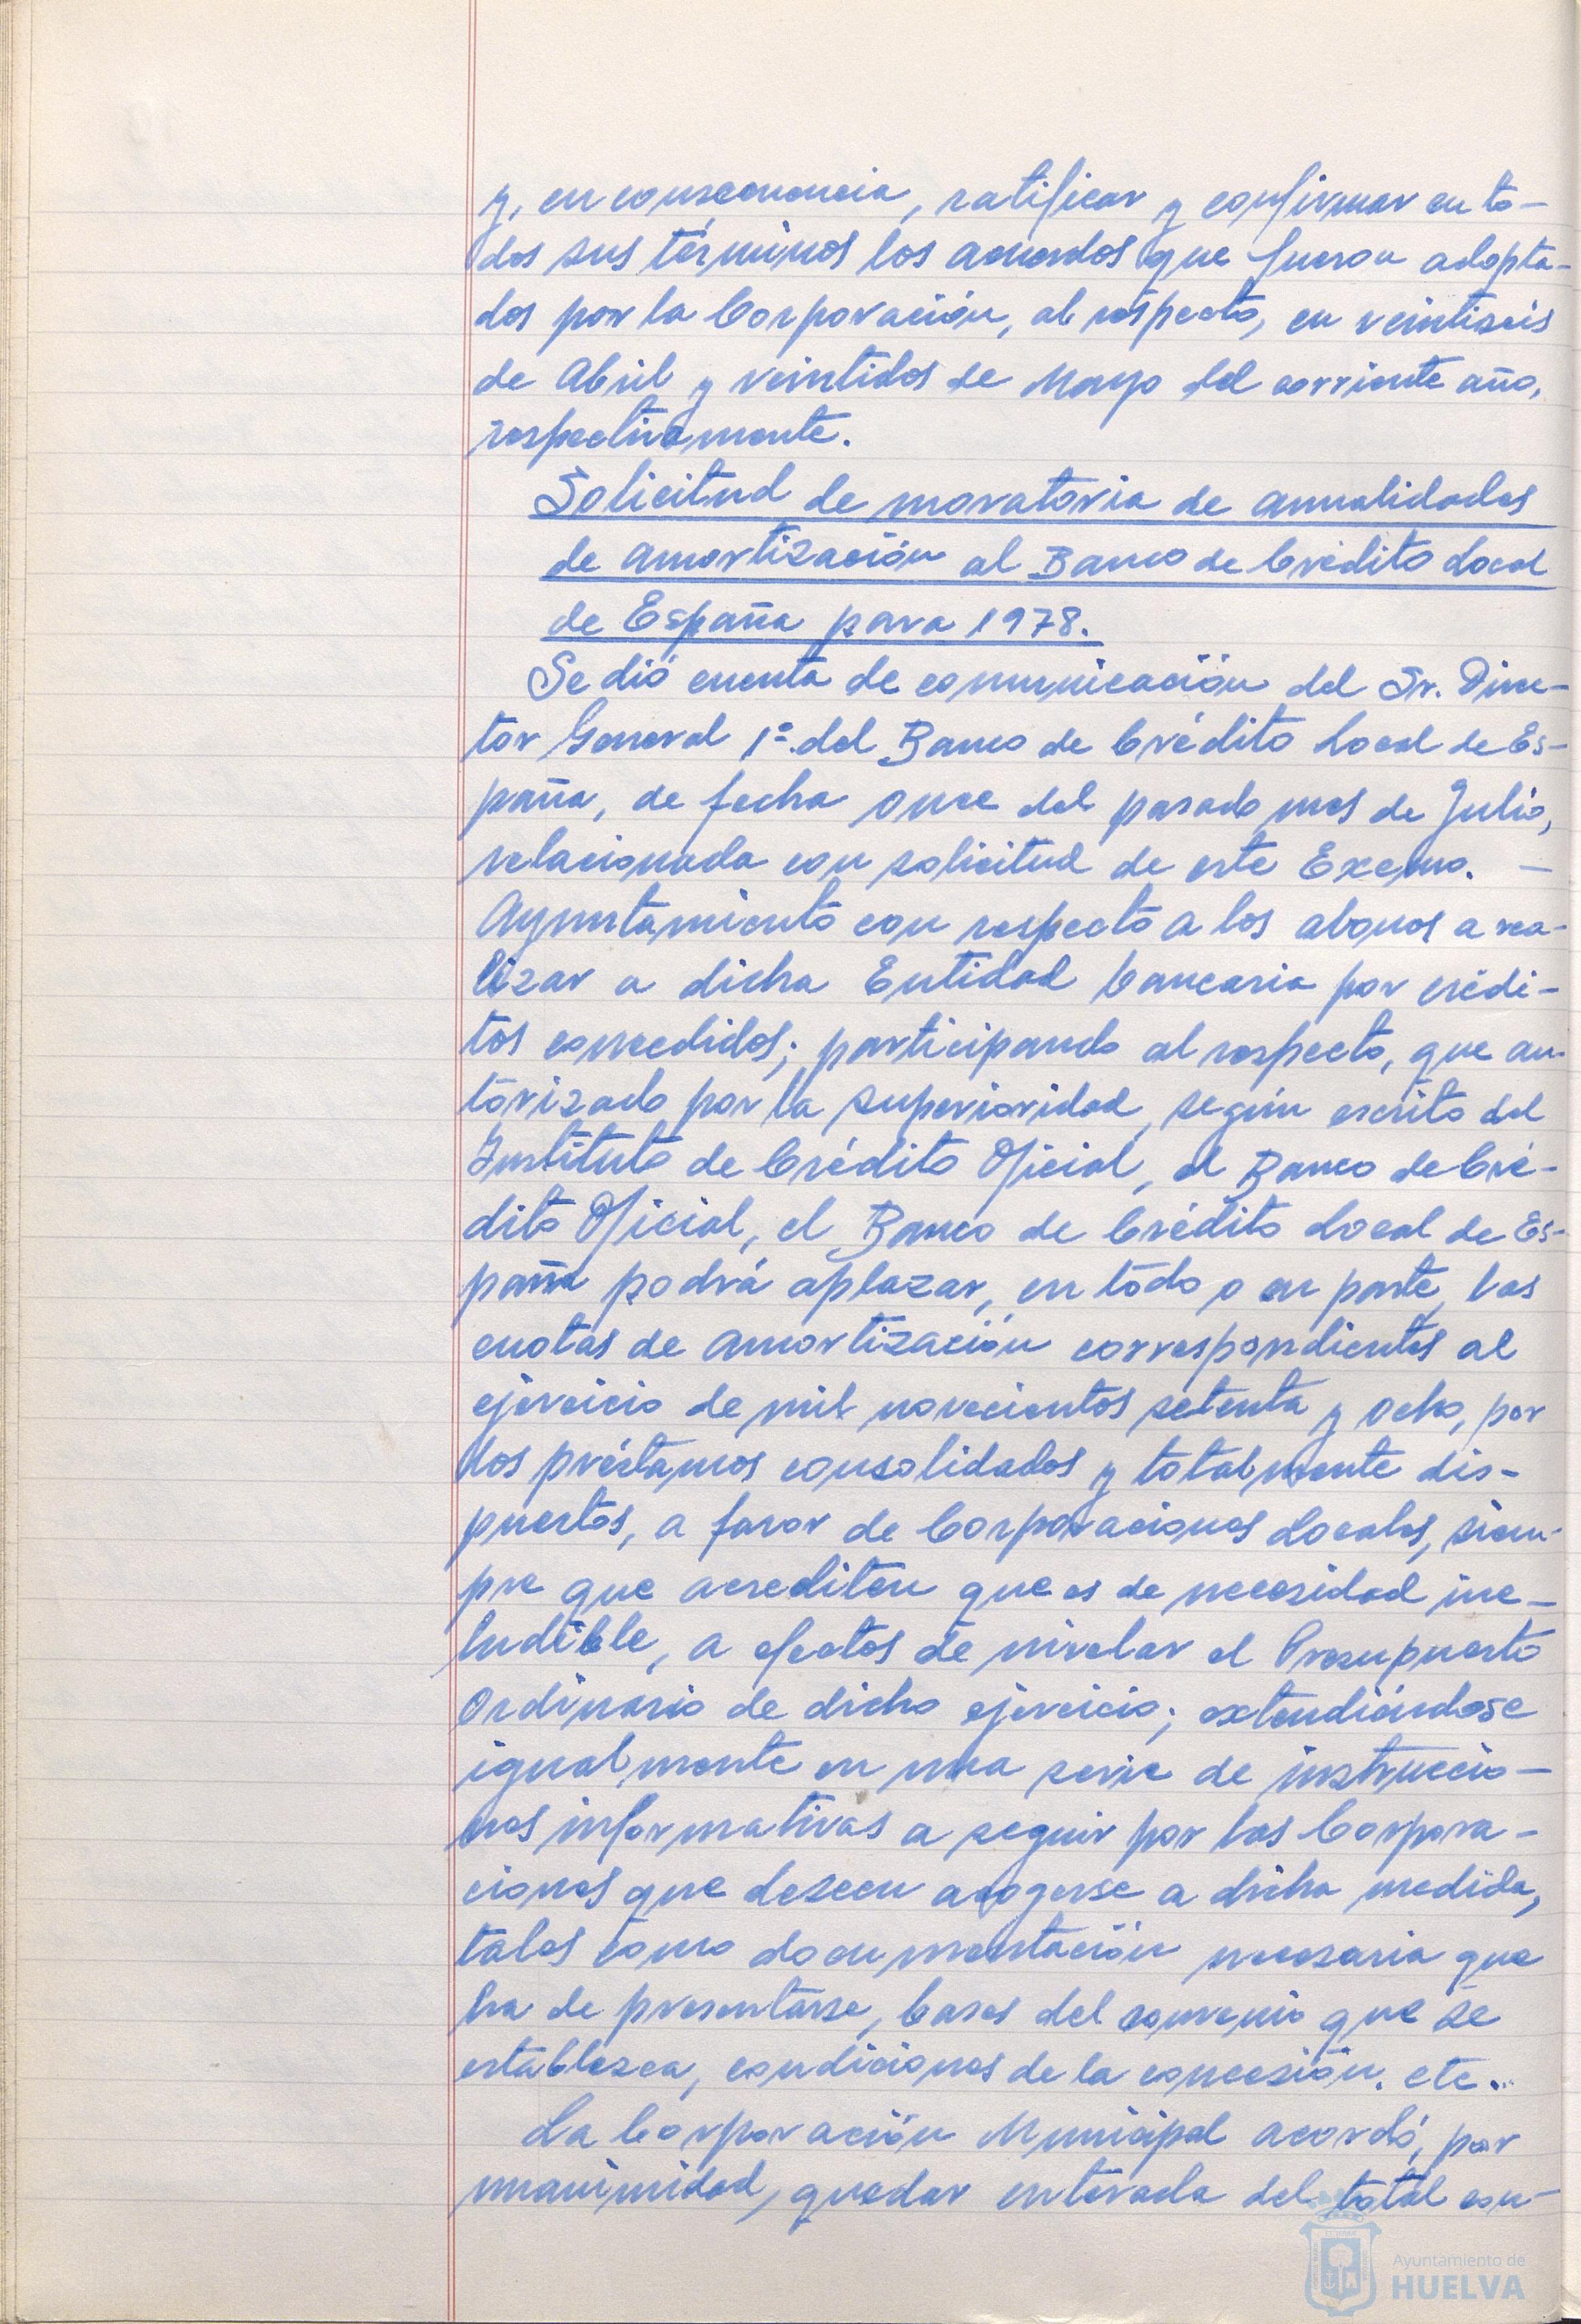 y, en consecuencia, ratificar y confirmar en to-
dos sus términos los acuerdos que fueron adopta-
dos por la Corporación, al respecto, en veintiseis
de Abril y veintidos de Mayo del corriente año,
respectivamente.
Solicitud de moratoria de anualidades
de amortización al Banco de Crédito Local
de España para 1978.
Se dió cuenta de comunicación del Sr. Direc-
tor General 1º del Banco de Crédito Local de Es-
paña, de fecha once del pasado mes de Julio,
relacionada con solicitud de este Excmo. -
Ayuntamiento con respecto a los abonos a rea-
lizar a dicha Entidad bancaria por crédi-
tos concedidos; participando al respecto, que au-
torizado por la superioridad, según escrito del
Instituto de Crédito Oficial, el Banco de Cré-
dito Oficial, el Banco de Crédito Local de Es-
paña podrá aplazar, en todo o en parte, las
cuotas de amortización correspondientes al
ejercicio de mil novecientos setenta y ocho, por
los préstamos consolidados y totalmente dis-
puestos, a favor de Corporaciones Locales, siem-
pre que acrediten que es de necesidad ine-
ludible, a efectos de nivelar el Presupuesto
Ordinario de dicho ejercicio; extendiéndose
igualmente en una serie de instruccio-
nes informativas a seguir por las Corpora-
ciones que deseen acogerse a dicha medida,
tales como documentación necesaria que
ha de presentarse, bases del convenio que se
establezca, condiciones de la concesión. etc...
La Corporación Municipal acordó, por
unanimidad, quedar enterada del total con-
Ayuntamiento de
HUELVA